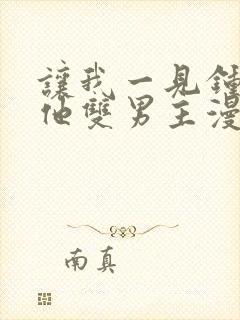 讓我一見鍾
他雙男主漫
南真